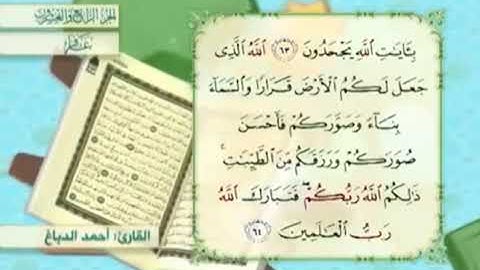 الجزء الرابع والعشرون
بِـَٔايَـٰتِ ٱللَّهِ يَجْحَدُونَ ٦٣ ٱللَّهُ ٱلَّذِى
جَعَلَ لَكُمُ ٱلْأَرْضَ قَرَارًا وَٱلسَّمَآءَ
بِنَآءً وَصَوَّرَكُمْ فَأَحْسَنَ
صُوَرَكُمْ وَرَزَقَكُم مِّنَ ٱلطَّيِّبَـٰتِ ۚ
ذَٰلِكُمُ ٱللَّهُ رَبُّكُمْ ۖ فَتَبَارَكَ ٱللَّهُ
رَبُّ ٱلْعَـٰلَمِينَ ٦٤
القارئ: أحمد الدباغ